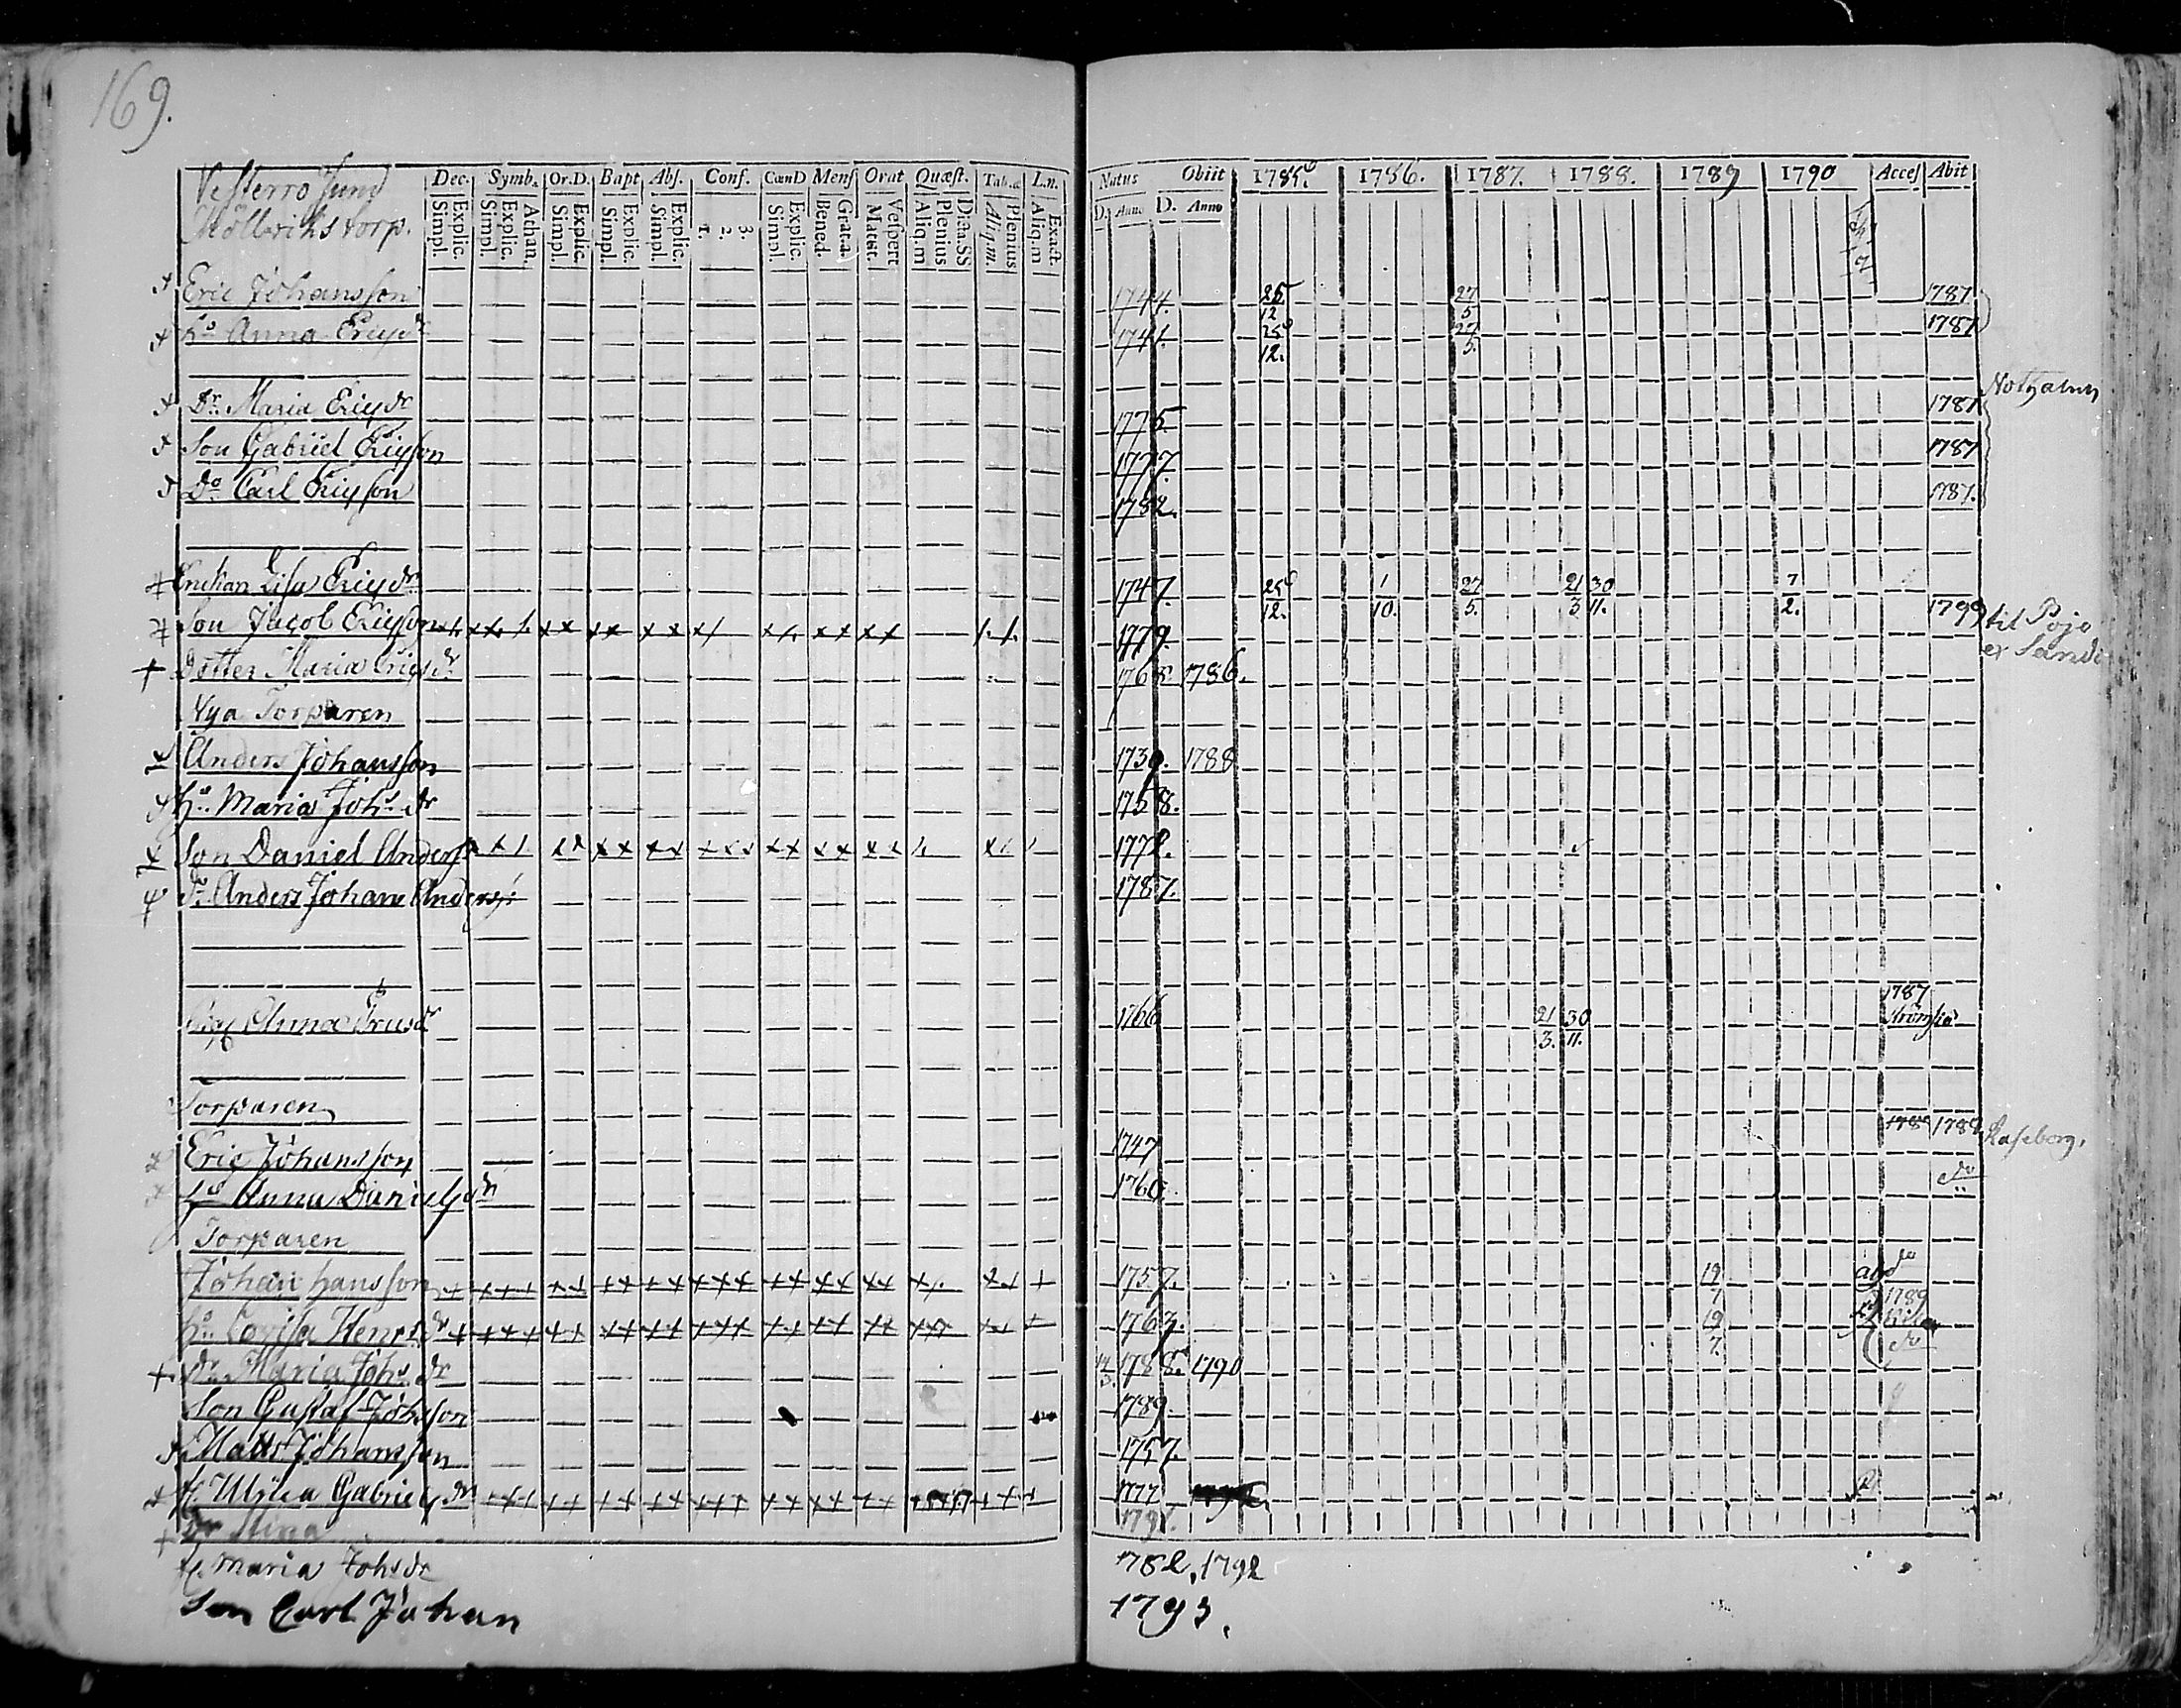 169.
Vesterro Sund
Möllarikstorp.
Dec. Symb. Or.D. Bapt Abs. Conf. CœnD Mens Orat Quæst. Tab.œ L.n. Natus Obiit 1785. 1786. 1787. 1788. 1789 1790 Acces Abit
Explic. Simpl. Athan. Explic. Simpl. Explic. Simpl. Explic. Simpl. Explic. Simpl. 3. 2. 1. Explic. Simpl. Grat.a. Bened. Vespert Matut. Dicta.SS Plenius Aliq.m Plenius Aliq.m. Exact. Aliq.m D. Anno D. Anno
Eric Johansson 1744. 25 12 27 5 1787
hu Anna Ericsdr 1741. 25 12. 27 5. 1787
Dr. Maria Ericsdr 1775. 1787
Son Gabriel Ericsson 1777 1787
Do Carl Ericsson 1782. 1787.
Enckan Lisa Ericsdr 1747. 25 12. 1 10. 27 5. 21 3 30 11. 7 2.
Son Jacob Ericsson 1779. 1799 til Pojo
Dotter Maria Ericsdr 1765 1786.
Nya Torparen
Anders Johansson 1730. 1788
hu Maria Johs dr 1758.
Son Daniel Anders 1772.
Dn Anders Johan Anders 1787.
Anna 1766 21 3. 30 11. 1787
Torparen
Eric Johansson 1747 1788 Raseborg.
hu Anna Danielsdr 1760. do
Torparen
Johan Hansson 1757. 19 7 do
hu Lovisa Henrsdr 1763. 19 7. 1789
dr Maria Johs dr 14 3. 1788. 1790
Son Gustaf Johsson 1789
Matts Johansson 1757.
H. Ulrica Gabrielsdr 1777
Dr Stina 1791.
H. Maria Johsdr 1782, 1792
Son Carl Johan 1793.